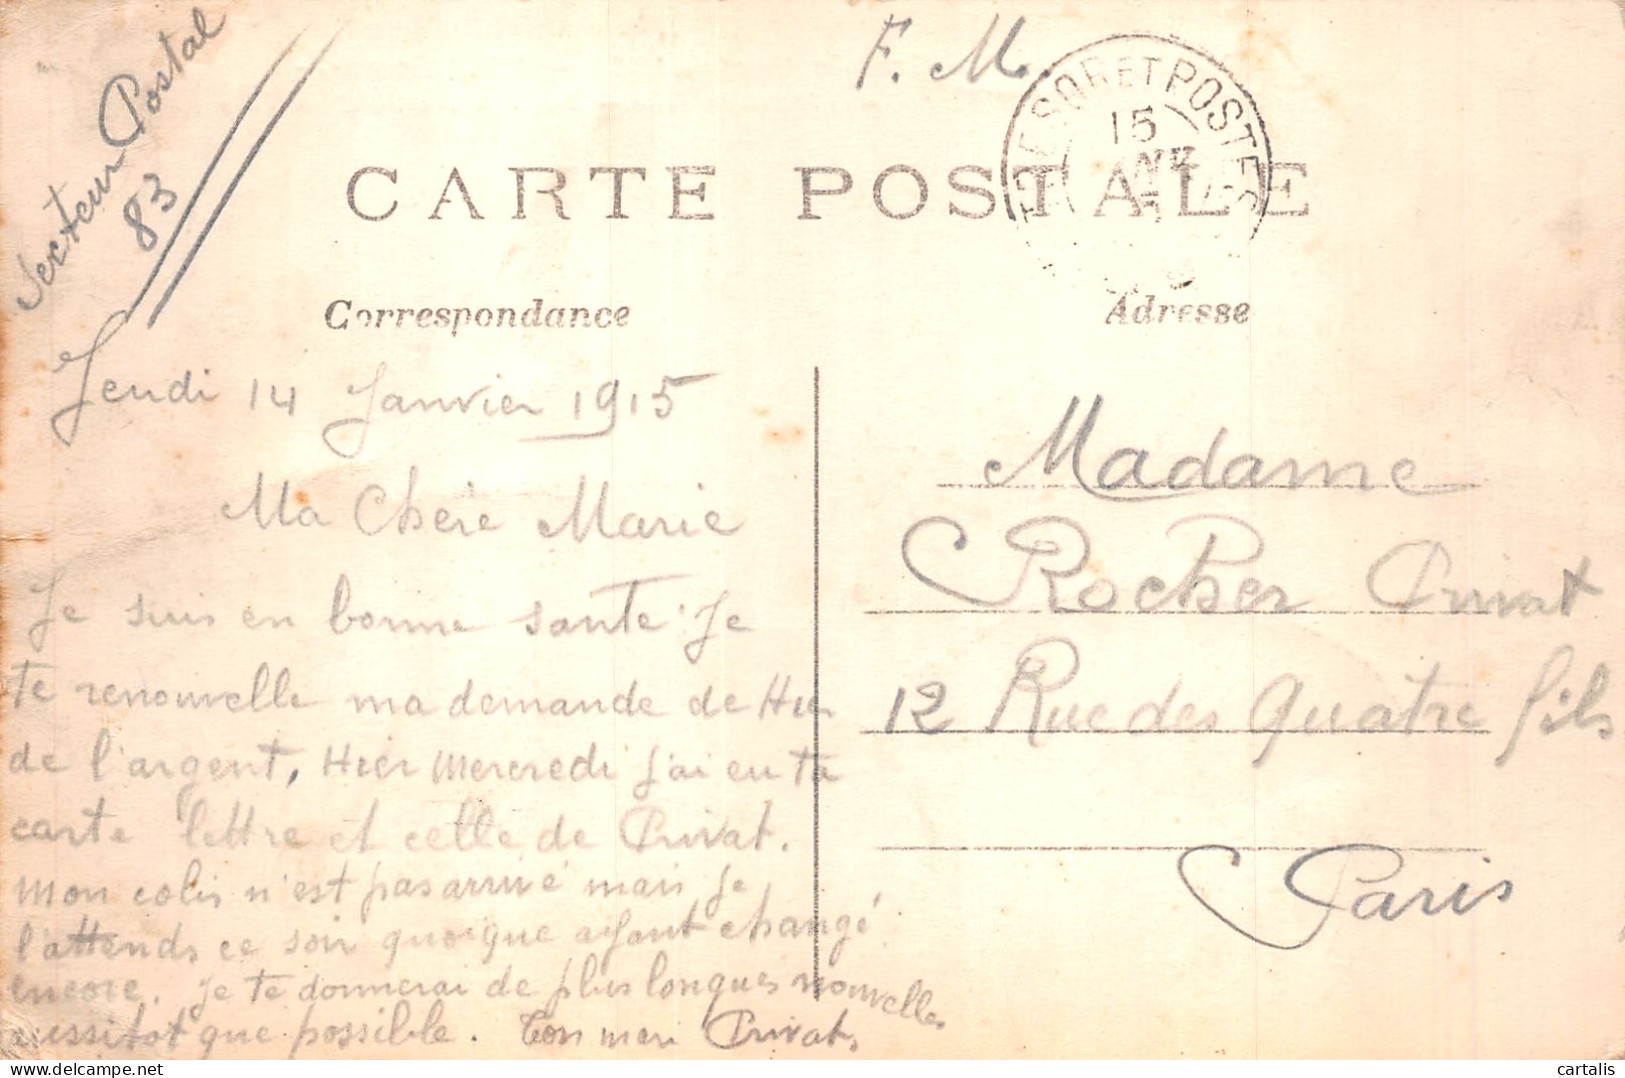 Secteur Postal
83
F. M.
TRESOR ET POSTES
15
CARTE POSTALE
Correspondance
Adresse
Jeudi 14 Janvier 1915
Ma Chère Marie
Je suis en bonne santé Je
te renouvelle ma demande de Hier
de l'argent, Hier Mercredi j'ai eu ta
carte lettre et celle de Privat.
Mon colis n'est pas arrivé mais je
l'attends ce soir quoique ayant changé
encore. Je te donnerai de plus longues nouvelles
aussitot que possible. Ton mari Privat
Madame
Rocher Privat
12 Rue des Quatre fils
Paris
cartalis